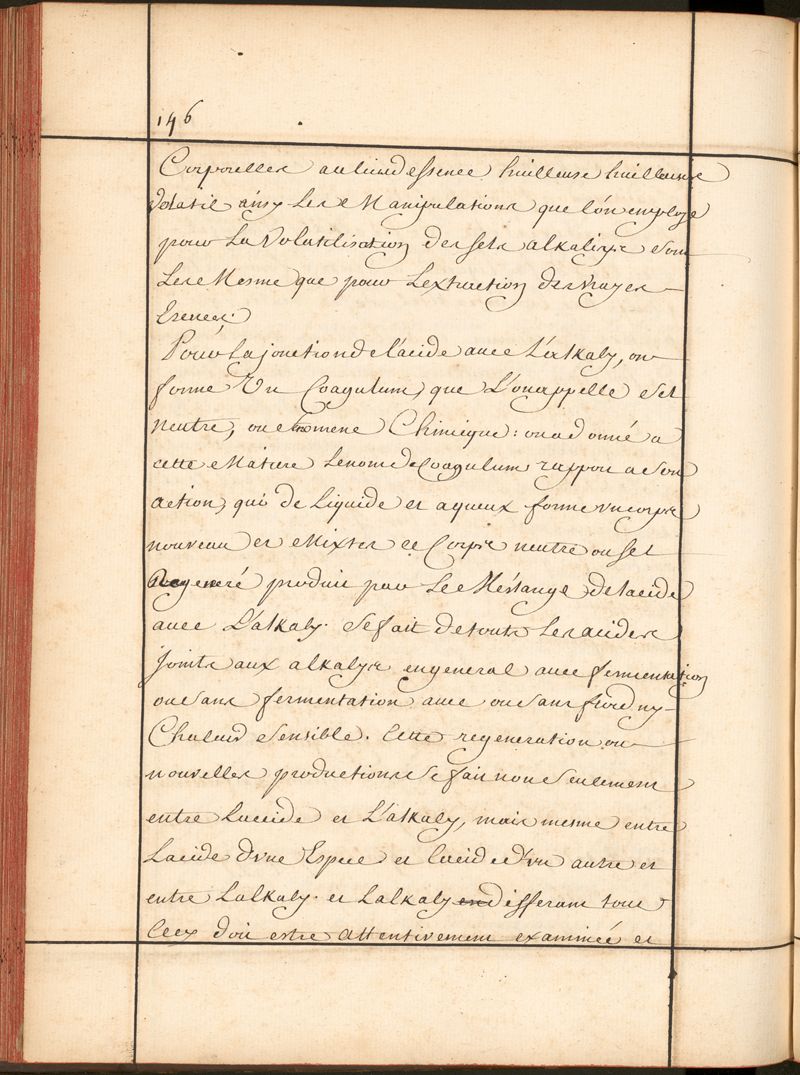 146
Corporelles au lieu dessence huilleuse huilleuse
volatil ainsy Les Manipulations que l'on employe
pour La Volatilisation des sels alkalys sont
Les Mesme que pour L'extraction des vrayes
Esences.
Pour La jonction de l'acide avec L'alkaly, on
forme Un Coagulum, que L'on appelle sel
neutre, ou Chimique: on a donné a
cette Matiere Le nom de Coagulum rapport a son
action, qui de Liquide et aqueux forme un corps
nouveau et Mixtes ce Corps neutre ou sel
Regeneré produit par Le Meslange de lacide
avec L'alkaly. se fait de touts Les acides
joints aux alkalys en general avec fermentation
ou sans fermentation avec ou sans froid ny
Chaleur sensible. Cette regeneration ou
nouvelles productions se fait non seulement
entre Lacide et L'alkaly, mais mesme entre
Lacide d'une Espece et lacide d'une autre et
entre Lalkaly. et Lalkaly en differant tout
Cecy doit estre attentivement examinée et